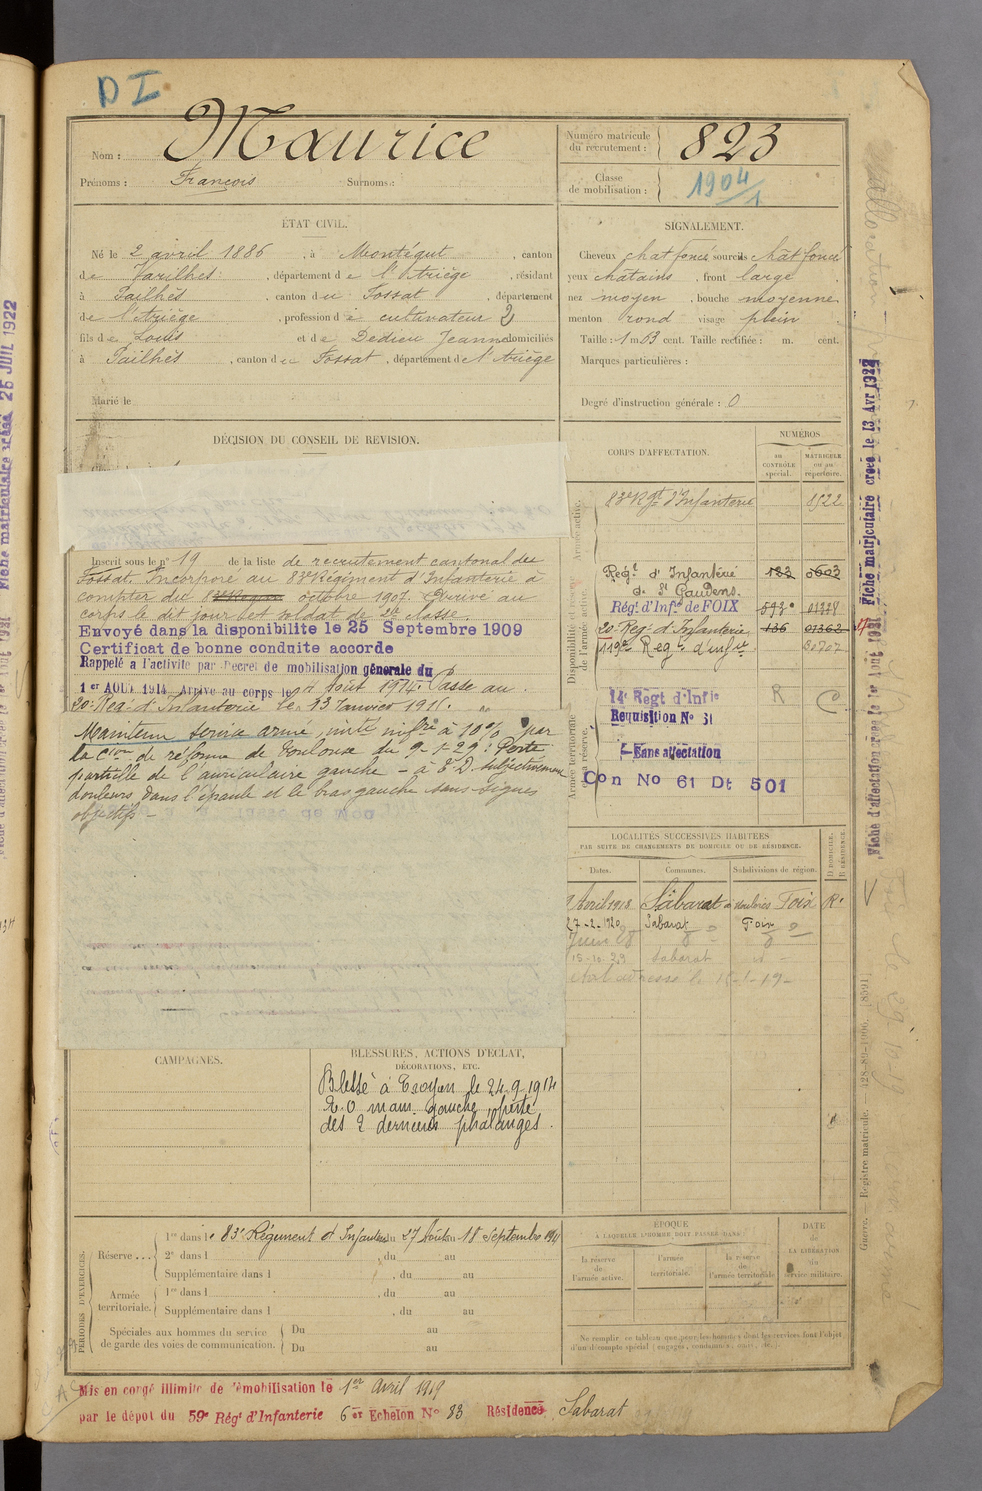 D I
Nom : Maurice
Prénoms : François Surnoms :
Numéro matricule du recrutement : 823
Classe de mobilisation : 1904/1
ÉTAT CIVIL.
Né le 2 avril 1886, à Montégut, canton
de Varilhes, département de l'Ariège, résidant
à Pailhès, canton du Fossat, département
de l'Ariège, profession de cultivateur 2
fils de Louis et de Dedieu Jeanne domiciliés
à Pailhès, canton du Fossat, département de l'Ariège
Marié le
SIGNALEMENT.
Cheveux chat foncé, sourcils chât foncé
yeux châtains, front large
nez moyen, bouche moyenne
menton rond visage plein
Taille : 1 m 63 cent. Taille rectifiée : m. cent.
Marques particulières :
Degré d'instruction générale : 0
DÉCISION DU CONSEIL DE REVISION.
Inscrit sous le n° 19 de la liste de recrutement cantonal du
Fossat. Incorporé au 83e Régiment d'Infanterie à
compter du octobre 1907. Arrivé au
corps le dit jour et soldat de 2e classe.
Envoyé dans la disponibilité le 25 Septembre 1909
Certificat de bonne conduite accordé
Rappelé à l'activité par Decret de mobilisation générale du
1er AOUT 1914. Arrivé au corps le 4 Août 1914. Passé au
20e Reg. d'Infanterie le 13 Janvier 1915.
Maintenu service armé, invté infre à 10% par
la Cion de réforme de Toulouse du 9-1-29 : Perte
partielle de l'auriculaire gauche - à E D subjectivement
douleurs dans l'épaule et le bras gauche sans signes
objectifs -
CORPS D'AFFECTATION.
NUMÉROS
AU CONTRÔLE spécial.
MATRICULE ou au répertoire.
Armée active.
83e Rgt d'Infanterie 8522
Disponibilité et réserve de l'armée active.
Regt d'Infanterie 133 0603
de St Gaudens.
Régt d'Infie de FOIX 593 01378
20e Regt d'Infanterie 136 01362
119e Regt d'infie
Armée territoriale et sa réserve.
14e Régt d'Infie R C
Requisition No 31
Sans affectation
Con No 61 Dt 501
LOCALITÉS SUCCESSIVES HABITÉES
PAR SUITE DE CHANGEMENTS DE DOMICILE OU DE RÉSIDENCE.
Dates. Communes. Subdivisions de région. D DOMICILE. R RÉSIDENCE.
Sabarat Foix R.
27-2-1920 Sabarat Foix
15-10-29 Sabarat
CAMPAGNES.
BLESSURES, ACTIONS D'ÉCLAT,
DÉCORATIONS, ETC.
Blessé à Troyon le 24.9.1914
E.O main gauche, perte
des 2 dernières phalanges.
PÉRIODES D'EXERCICES.
Réserve...
1re dans le 83e Régiment d'Infanterie du 27 Août au 18 Septembre 1911
2e dans l , du au
Supplémentaire dans l , du au
Armée territoriale.
1re dans l , du au
Supplémentaire dans l , du au
Spéciales aux hommes du service de garde des voies de communication.
Du au
Du au
ÉPOQUE
À LAQUELLE L'HOMME DOIT PASSER DANS :
la réserve de l'armée active.
l'armée territoriale.
la réserve de l'armée territoriale
DATE de LA LIBÉRATION du service militaire.
Ne remplir ce tableau que pour les hommes dont les services font l'objet
d'un décompte spécial (engagés, condamnés, omis, etc.).
Mis en congé illimité de démobilisation le 1er Avril 1919
par le dépôt du 59e Régt d'Infanterie 6er Echelon No 83 Résidence Sabarat
Fiche matriculaire créée le 13 Avr 1922
Fiche d'affectation créée le 1er Août 1931
Guerre. — Registre matricule. — 428-89-1906. [8591]
Fiche matriculaire créée 26 JUIL 1922